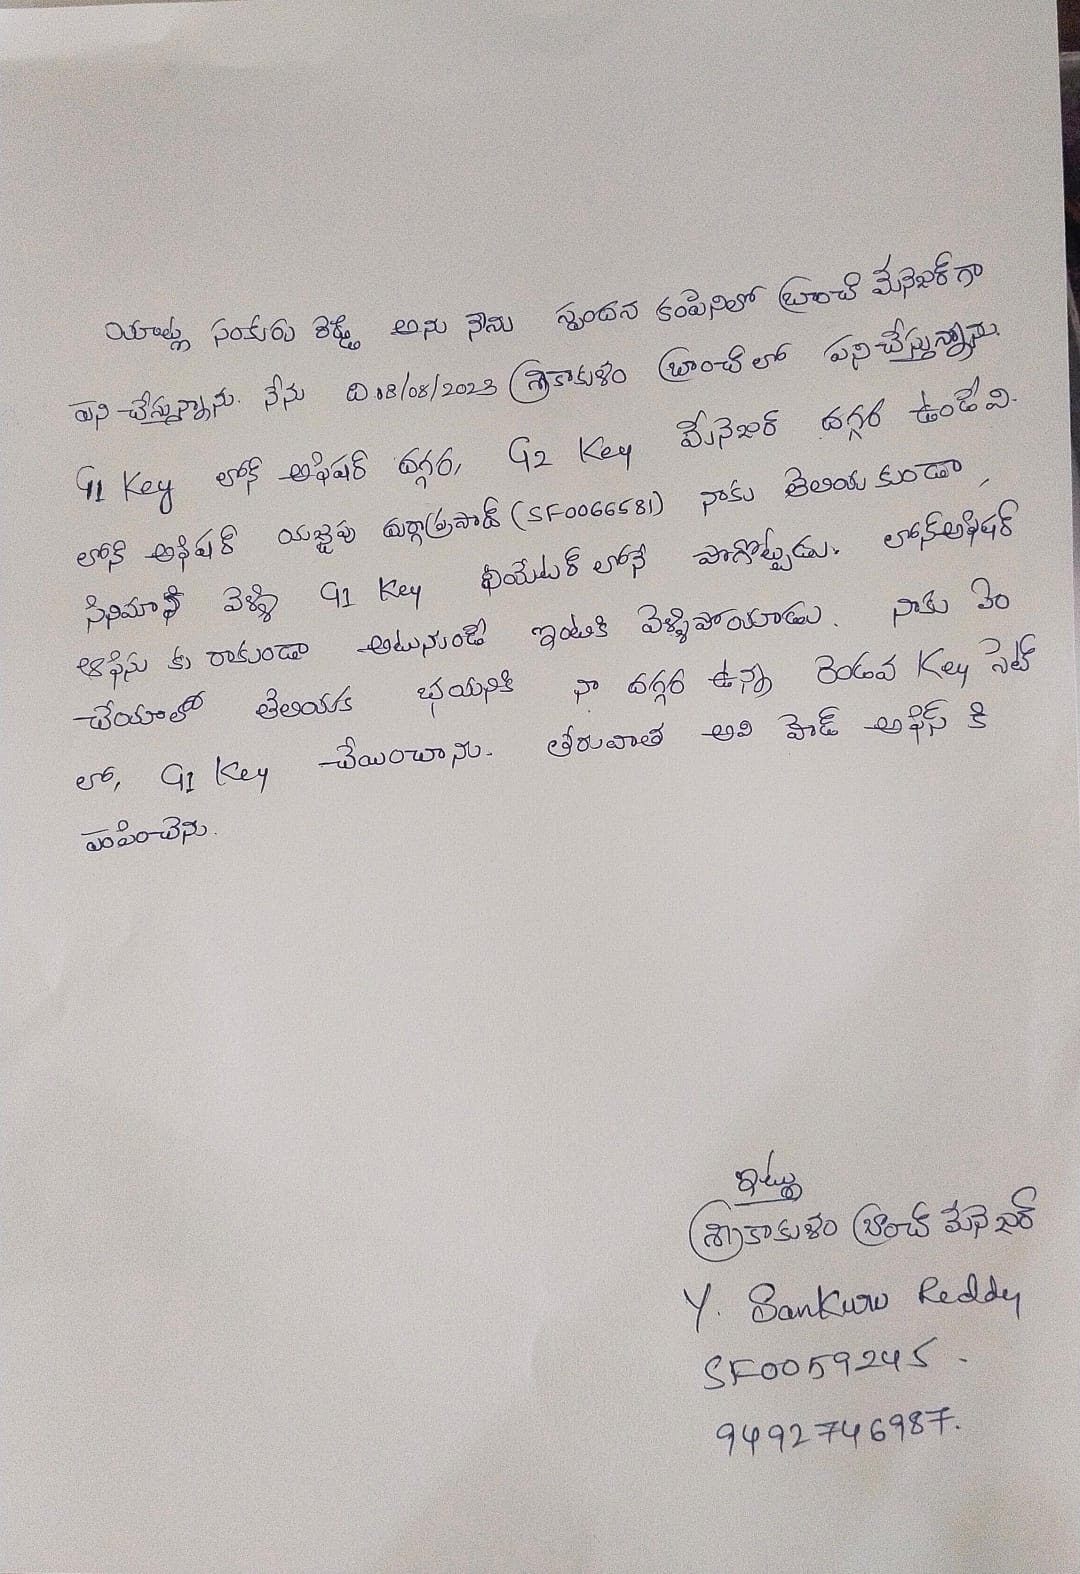 యాళ్ళ సంకురు రెడ్డి అను నేను స్పందన కంపెనీలో బ్రాంచ్ మేనెజర్ గా
పని చేస్తున్నాను. నేను ది.18/08/2023 శ్రీకాకుళం బ్రాంచ్ లో పనిచేస్తున్నాను.
G1 Key లోన్ ఆఫీషర్ దగ్గర, G2 Key మేనెజర్ దగ్గర ఉండేవి.
లోన్ ఆఫీషర్ యజ్జపు దుర్గాప్రసాద్ (SF0066581) నాకు తెలియకుండా,
సినిమాకి వెళ్ళి G1 Key థియేటర్ లోనే పొగొట్టుడు. లోన్ఆఫీషర్
ఆఫీసు కు రాకుండా అటునుండే ఇంటికి వెళ్ళిపోయాడు. నాకు ఏం
చేయాలో తెలియక భయానికి నా దగ్గర ఉన్న రెండవ Key సెట్
లో, G1 Key చేయించాను. తరువాత అవి హెడ్ ఆఫీస్ కి
పంపించెను.
ఇట్లు
శ్రీకాకుళం బ్రాంచ్ మేనెజర్
Y. Sankuru Reddy
SF0059245.
9492746987.